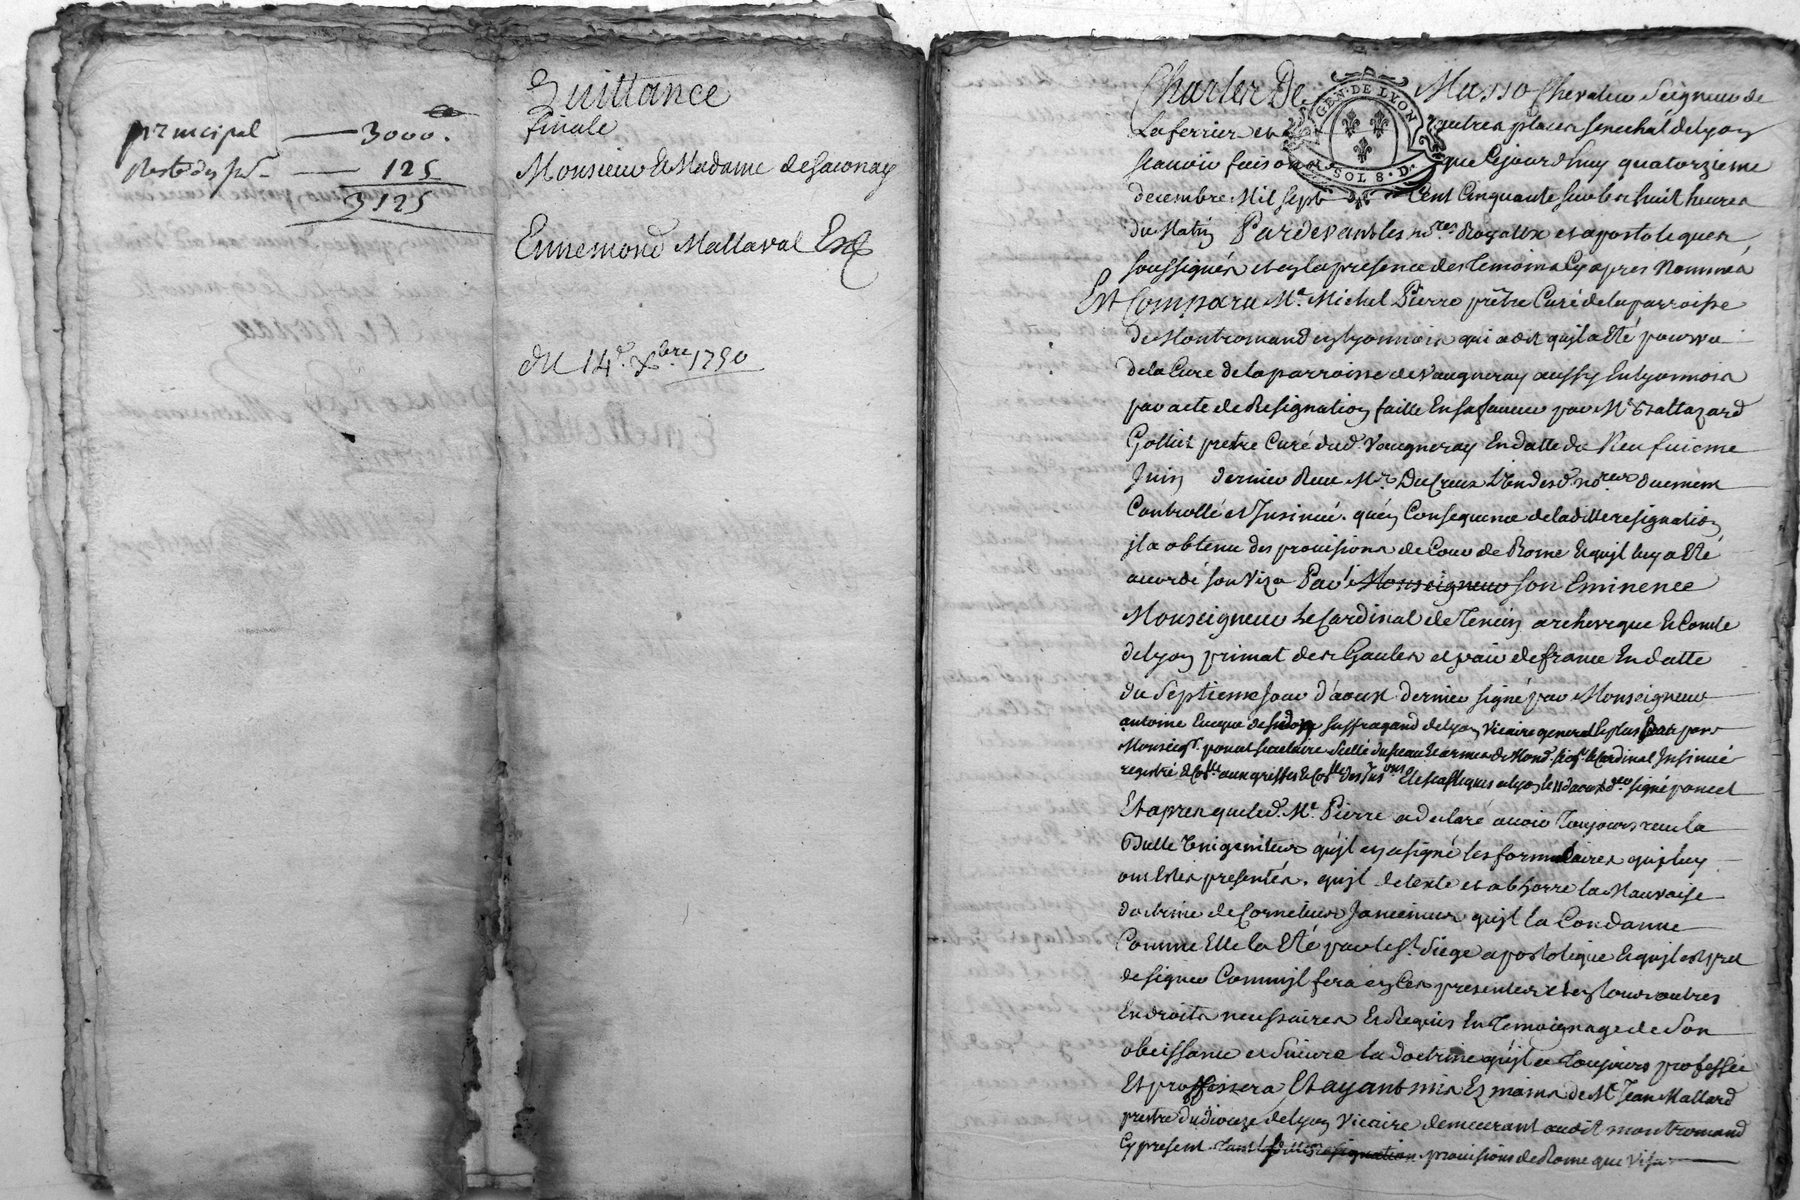 principal — 3000.
Reste des jn. — 125
3125
Quittance
finale
Monsieur Et Madame de Saconay
Ennemond Mattaval Esc
du 14e. Xbre. 1750
GEN. DE LYON
SOL 8. D.
Charles De Masso Chevalier Seigneur de
La ferriere et autres places senechal de Lyon
scavoir faison que Cejourdhuy quatorzieme
decembre Mil sept Cent Cinquante sur les huit heures
du Matin Pardevant les nores. Royaux et apostoliques
soussignés et en la presence des temoins Cy apres Nommés
Est Comparu Me. Michel Pierre prêtre Curé de la parroisse
de Montromand en Lyonnois qui a dit qu'jl a Eté pourvu
de la Cure de la parroisse de Vaugneray aussy En Lyonnois
par acte de Resignation faitte En sa faveur par Me Baltazard
Golliet pretre Curé dud. Vaugneray En datte du Neufvieme
Juin dernier Receu Me. DuCreux L'un desd. nores duement
Controllé et Jnsinué. qu'en Consequence de la ditte resignation
jl a obtenu des provisions de Cour de Rome Et qu'jl luy a Eté
accordé son Visa Par Monseigneur son Eminence
Monseigneur Le Cardinal de Tencin archeveque Et Comte
de Lyon primat des Gaules et pair de france En datte
du Septieme Jour d'aoust dernier signé par Monseigneur
antoine Eveque de sidon suffragand de Lyon Vicaire general Et plus bas par
Monsieur secretaire scellé du sceau Et armes de Mond. seigr. le Cardinal Jnsinué
registré Et aux greffes des Jnsons Eclesiastiques a Lyon le 11 daoust der signé poncet
Et apres que led. Me. Pierre a declaré avoir Toujours receu la
Bulle Unigenitus qu'jl en a signé les formulaires qui luy
ont Etés presentés. qu'jl deteste et abhorre la Mauvaise
doctrine de Cornelius Jansenius qu'jl la Condamne
Comme Elle la Eté par le St. Siege apostolique Et qu'jl est pret
de signer Comm'jl fera en Ces presentes et en tous autres
Endroits necessaires Et Requis En Temoignage de Son
obeissance et Suivre la doctrine qu'jl a Toujours professée
Et professera Et ayant mis Es mains de Me Jean Mallard
prestre du dioceze de Lyon Vicaire demeurant audit montromand
Cy present tant laditte resignation provisions de Rome que Visa